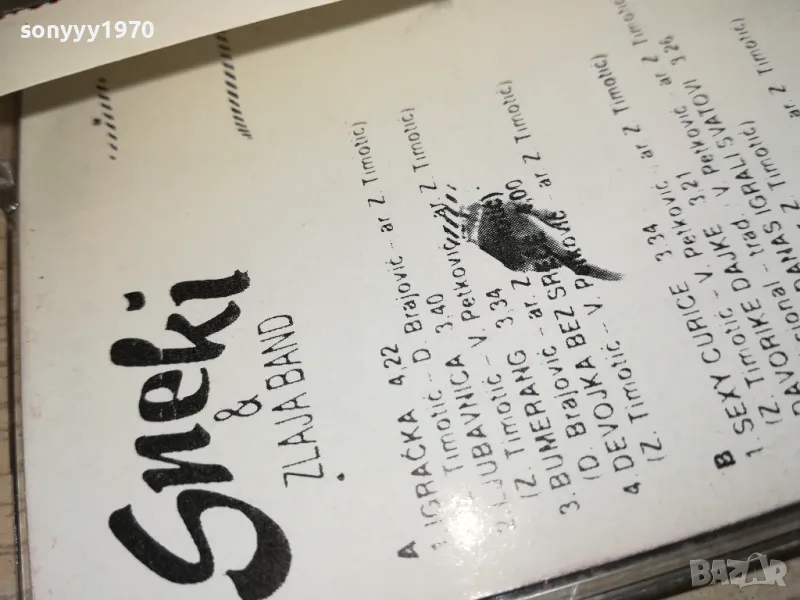 sonyyy1970
Sneki
&
ZLAJA BAND
A
1. IGRAČKA 4,22
Timotić - D. Brajović - ar Z. Timotić)
2. LJUBAVNICA 3,40
(Z. Timotić - V. Petković - ar Z. Timotić)
3. BUMERANG 3,34
(D. Brajović - ar Z.
4. DEVOJKA BEZ 00
(Z. Timotić - V. - ar Z. Timotić)
B
1. SEXY CURICE 3,34
(Z. Timotić - V. Petković - ar Z. Timotić)
DAJKE 3,21
trad. V. Petković - ar Z. Timotić)
IGRALI SVATOVI 3,26
ar Z. Timotić)
BAZAR